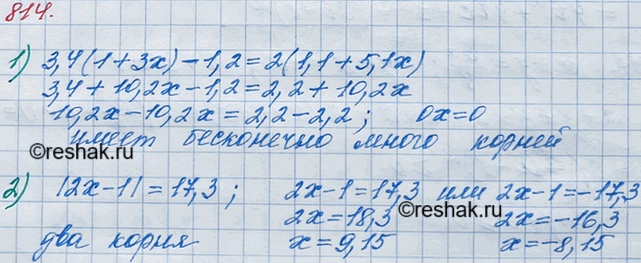 814.
1) 3,4(1+3x)-1,2=2(1,1+5,1x)
3,4+10,2x-1,2=2,2+10,2x
10,2x-10,2x=2,2-2,2; 0x=0
имеет бесконечно много корней
©reshak.ru
2) |2x-1|=17,3; 2x-1=17,3 или 2x-1=-17,3
©reshak.ru
2x=18,3 2x=-16,3
два корня x=9,15 x=-8,15